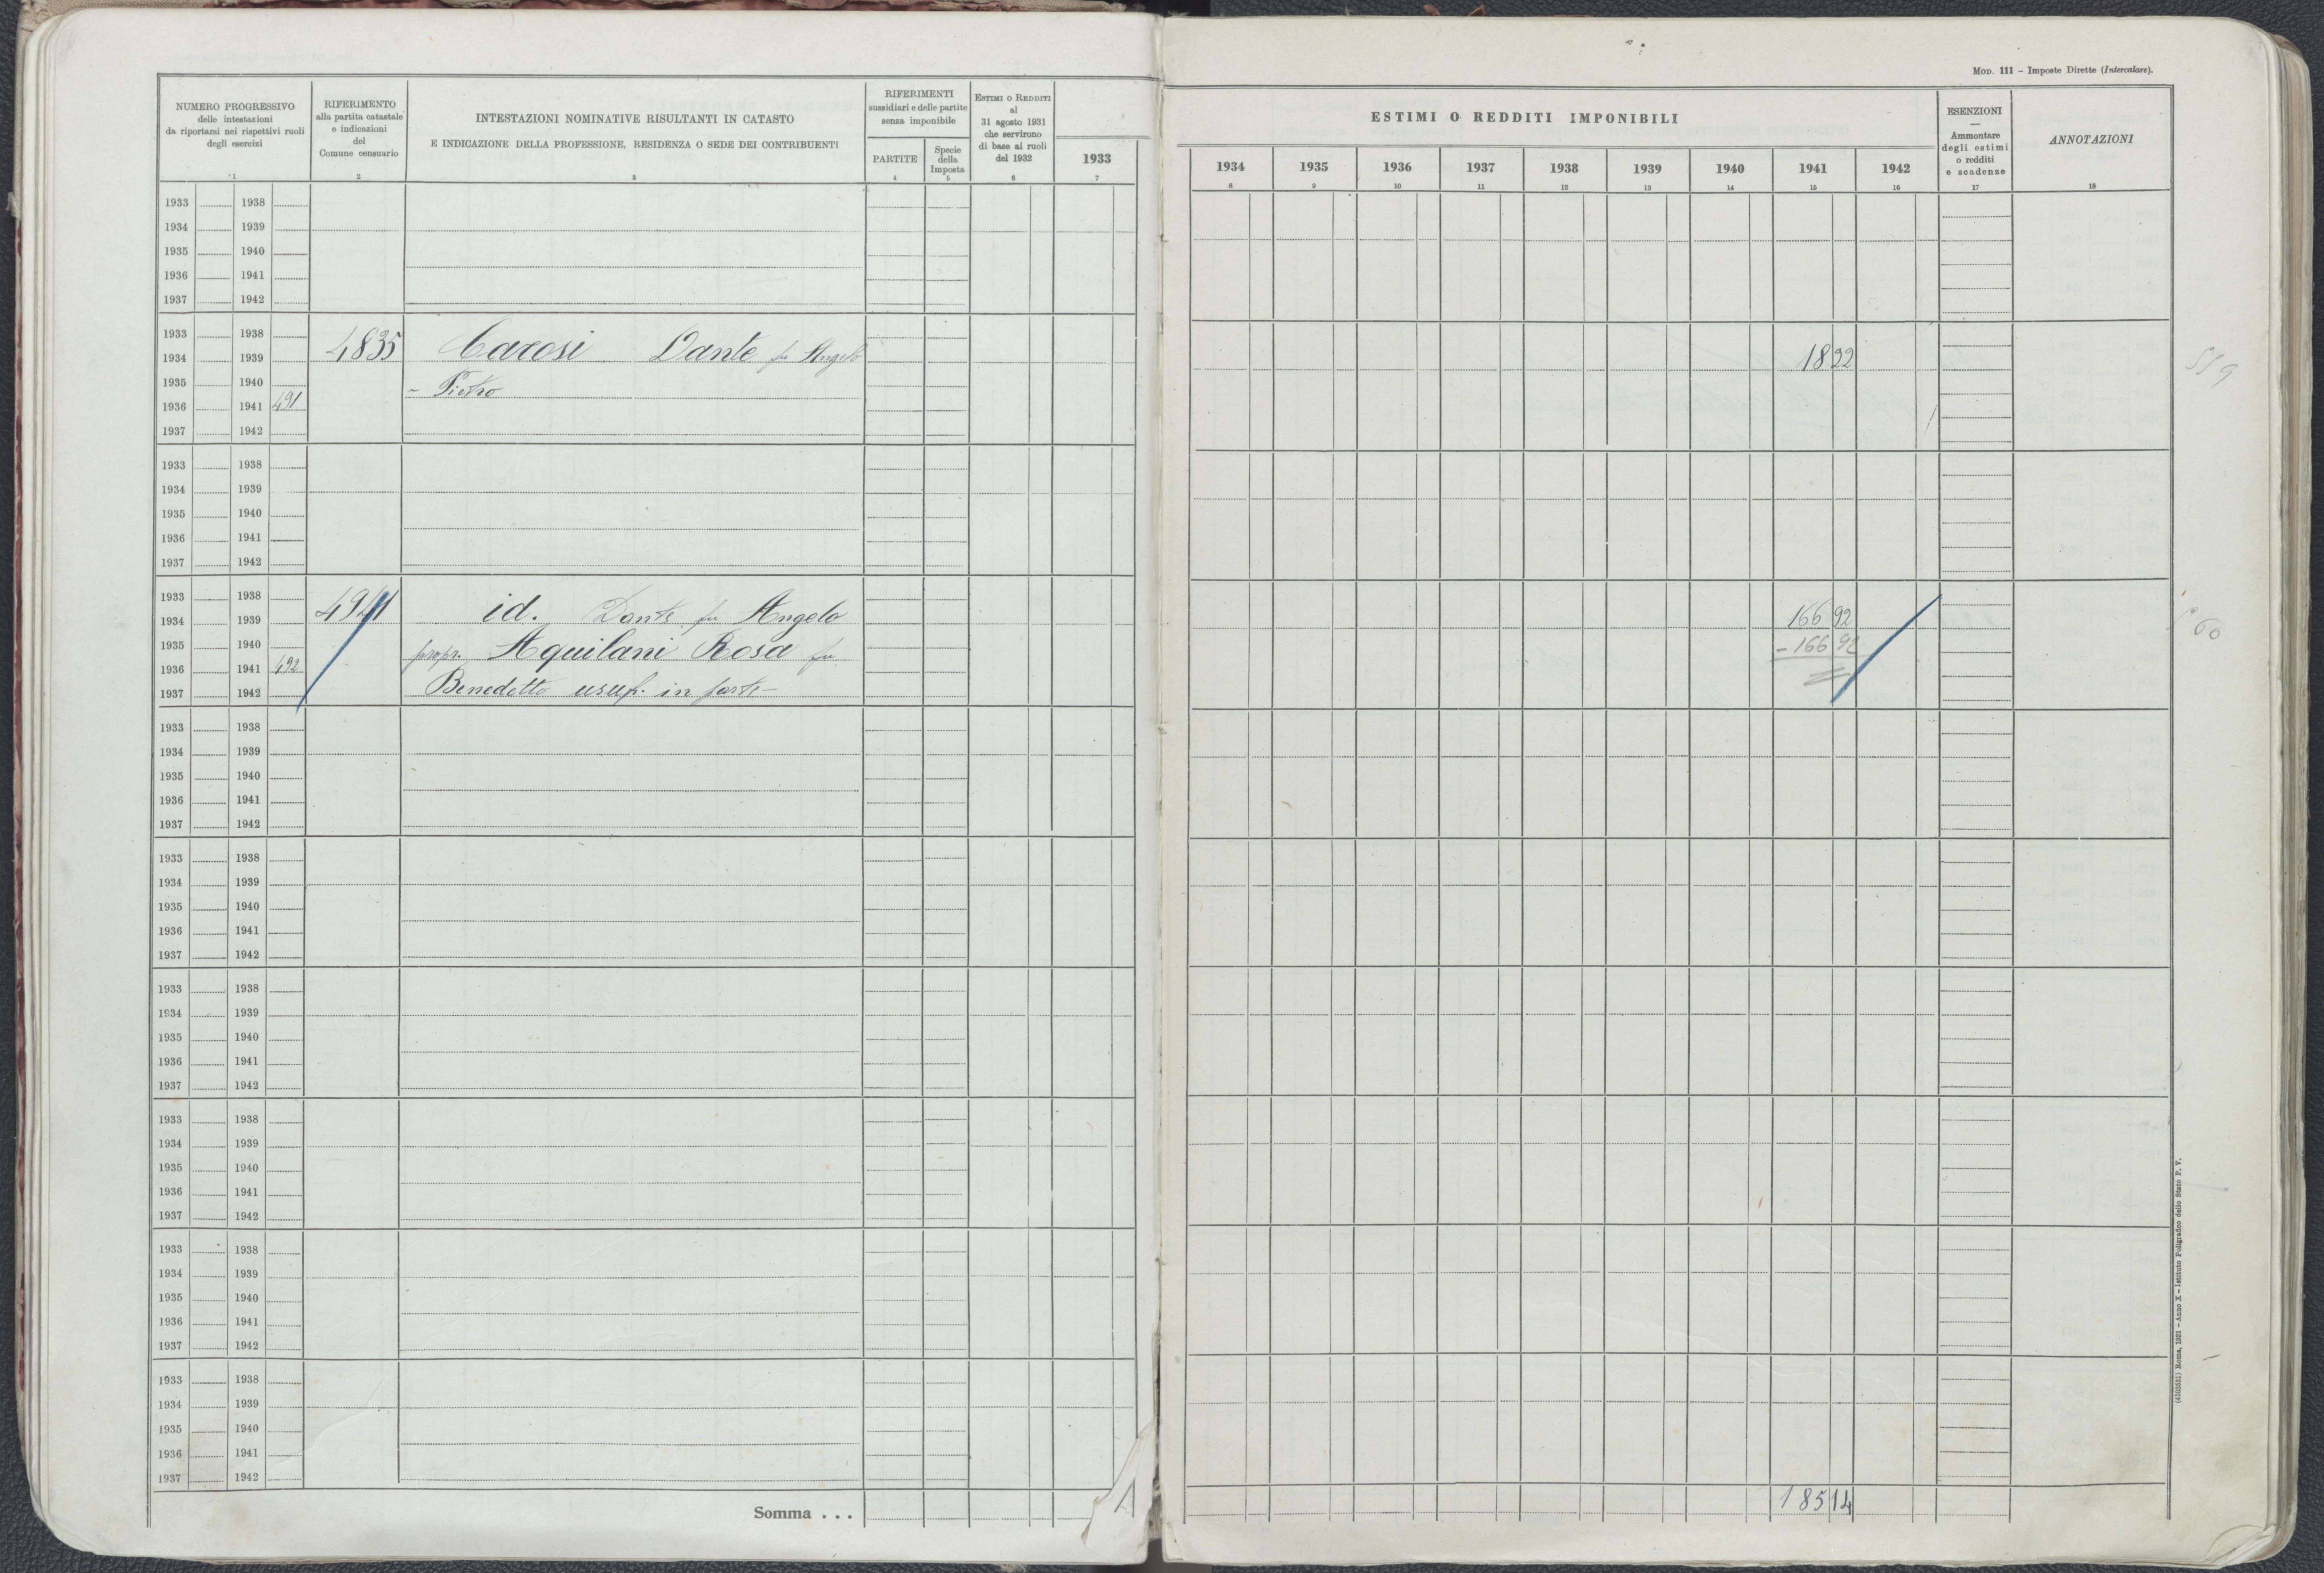 MOD. 111 – Imposte Dirette (Intercalare).
NUMERO PROGRESSIVO
delle intestazioni
da riportarsi nei rispettivi ruoli
degli esercizi
1
RIFERIMENTO
alla partita catastale
e indicazioni
del
Comune censuario
2
INTESTAZIONI NOMINATIVE RISULTANTI IN CATASTO
E INDICAZIONE DELLA PROFESSIONE, RESIDENZA O SEDE DEI CONTRIBUENTI
3
RIFERIMENTI
sussidiari e delle partite
senza imponibile
PARTITE
4
Specie
della
Imposta
5
ESTIMI O REDDITI
al
31 agosto 1931
che servirono
di base ai ruoli
del 1932
6
1933
7
ESTIMI O REDDITI IMPONIBILI
1934 1935 1936 1937 1938 1939 1940 1941 1942
8 9 10 11 12 13 14 15 16
ESENZIONI
—
Ammontare
degli estimi
o redditi
e scadenze
17
ANNOTAZIONI
18
1933 1938
1934 1939
1935 1940
1936 1941
1937 1942
1933 1938
1934 1939 4835 Carosi Dante fu Angelo 1822
1935 1940 – Pietro
1936 1941 491
1937 1942
1933 1938
1934 1939
1935 1940
1936 1941
1937 1942
1933 1938
1934 1939 4941 id. Dante fu Angelo 166 92
1935 1940 propr. Aquilani Rosa fu – 166 92
1936 1941 492
1937 1942 Benedetto usuf. in parte –
1933 1938
1934 1939
1935 1940
1936 1941
1937 1942
1933 1938
1934 1939
1935 1940
1936 1941
1937 1942
1933 1938
1934 1939
1935 1940
1936 1941
1937 1942
1933 1938
1934 1939
1935 1940
1936 1941
1937 1942
1933 1938
1934 1939
1935 1940
1936 1941
1937 1942
1933 1938
1934 1939
1935 1940
1936 1941
1937 1942
Somma . . . 185 14
(4103531) Roma, 1931 – Anno X – Istituto Poligrafico dello Stato P. V.